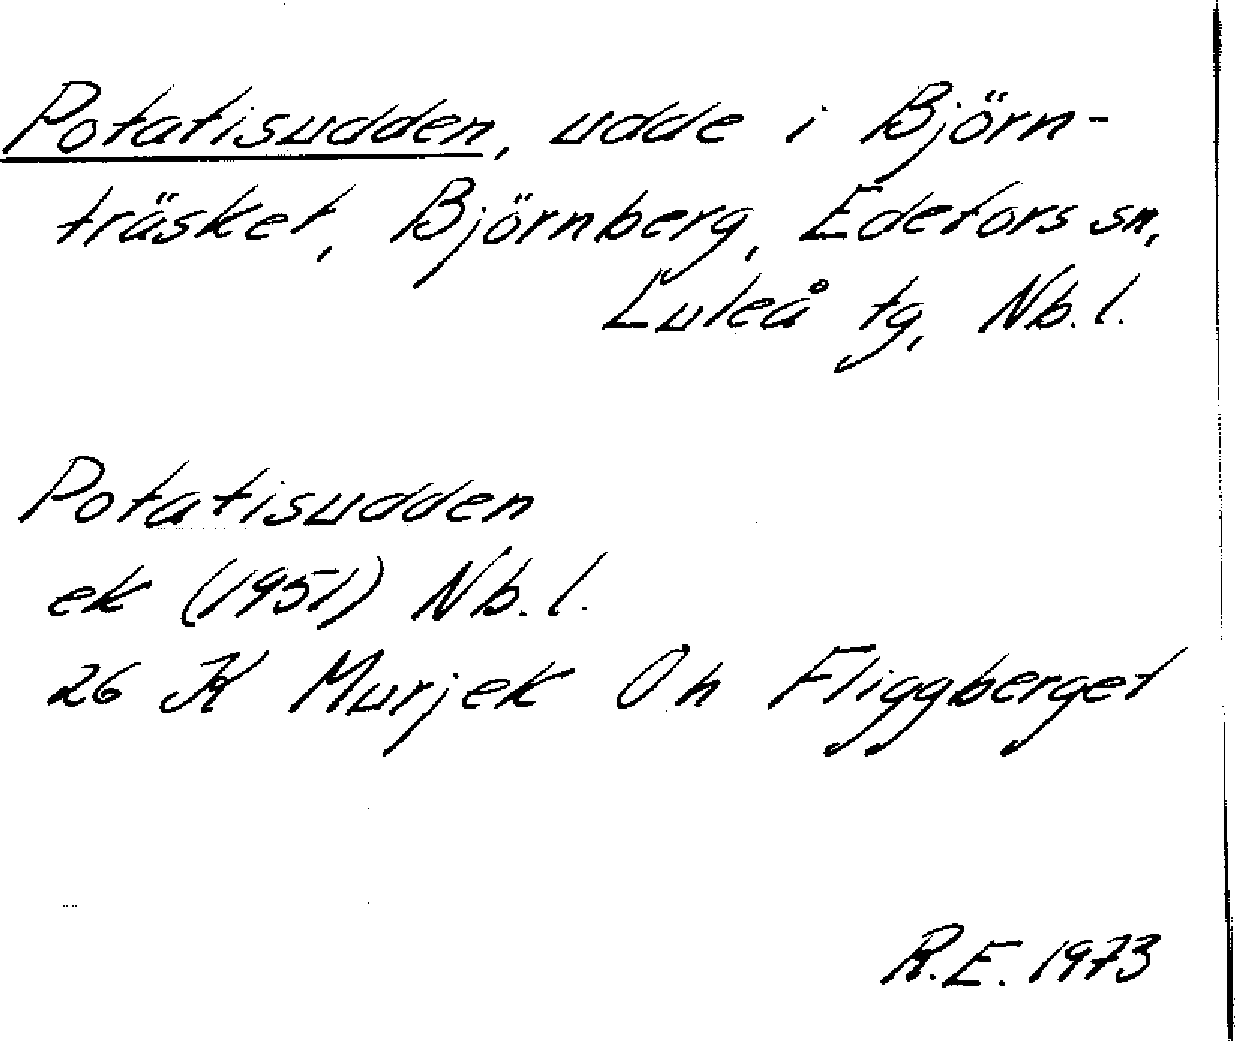 Potatisudden, udde i Björn-
träsket, Björnberg, Edefors sn,
Luleå tg, Nb.l.
Potatisudden
ek (1951) Nb.l.
26 K Murjek Oh Fliggberget
R.E. 1973